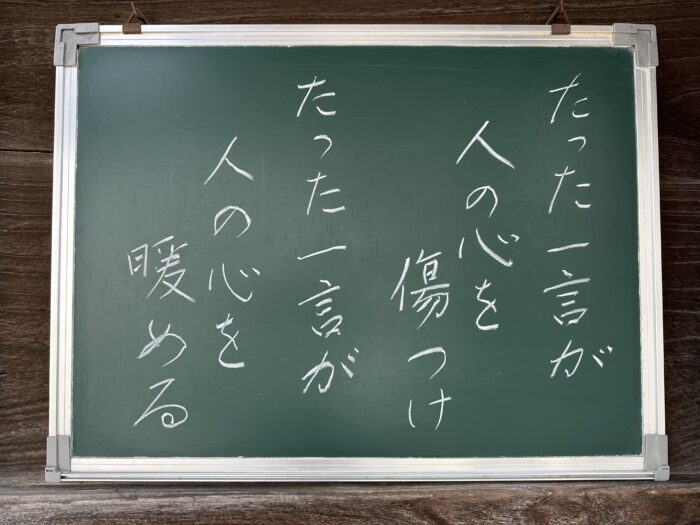 たった一言が
人の心を
傷つけ
たった一言が
人の心を
暖める